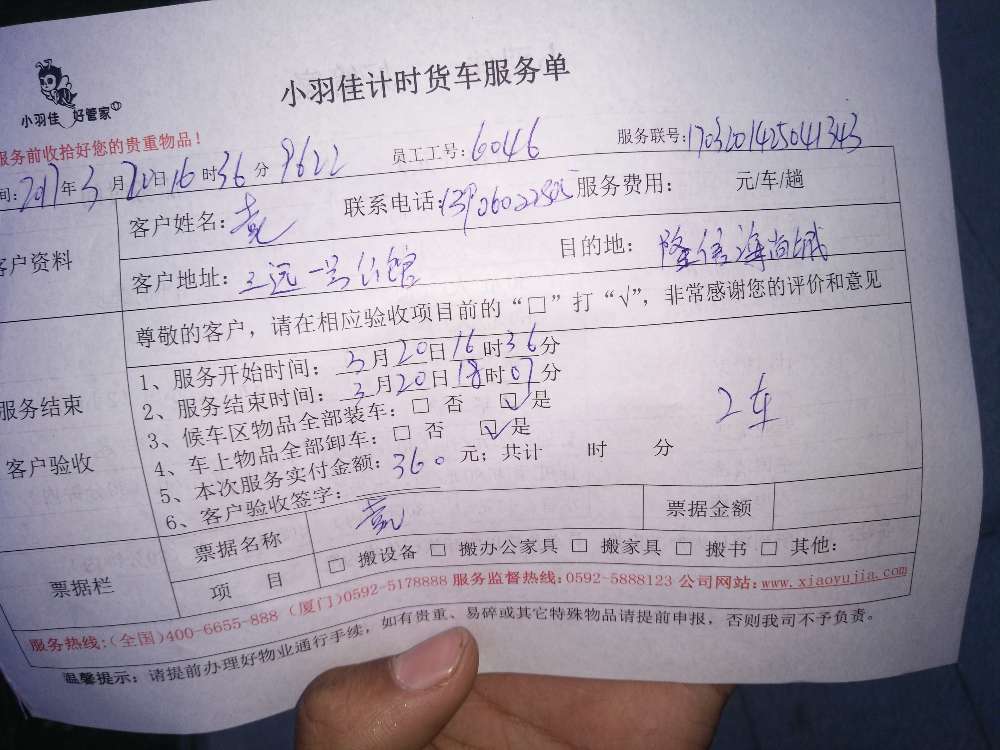 小羽佳 好管家
小羽佳计时货车服务单
服务前收拾好您的贵重物品！
间：2017年3月20日16时36分 9622 员工工号：6046 服务联号：1703201425041343
客户资料
客户姓名： 联系电话： 服务费用： 元/车/趟
客户地址：一号公馆 目的地：隆信海尚城
尊敬的客户，请在相应验收项目前的“□”打“√”，非常感谢您的评价和意见
服务结束
客户验收
1、服务开始时间：3月20日16时36分
2、服务结束时间：3月20日18时07分
3、候车区物品全部装车：□ 否 ☑ 是
4、车上物品全部卸车：□ 否 ☑ 是
5、本次服务实付金额：360元；共计 时 分
6、客户验收签字：
2车
票据栏
票据名称 票据金额
项 目 □ 搬设备 □ 搬办公家具 □ 搬家具 □ 搬书 □ 其他：
服务热线：（全国）400-6655-888 （厦门）0592-5178888 服务监督热线：0592-5888123 公司网站：www.xiaoyujia.com
温馨提示：请提前办理好物业通行手续，如有贵重、易碎或其它特殊物品请提前申报，否则我司不予负责。